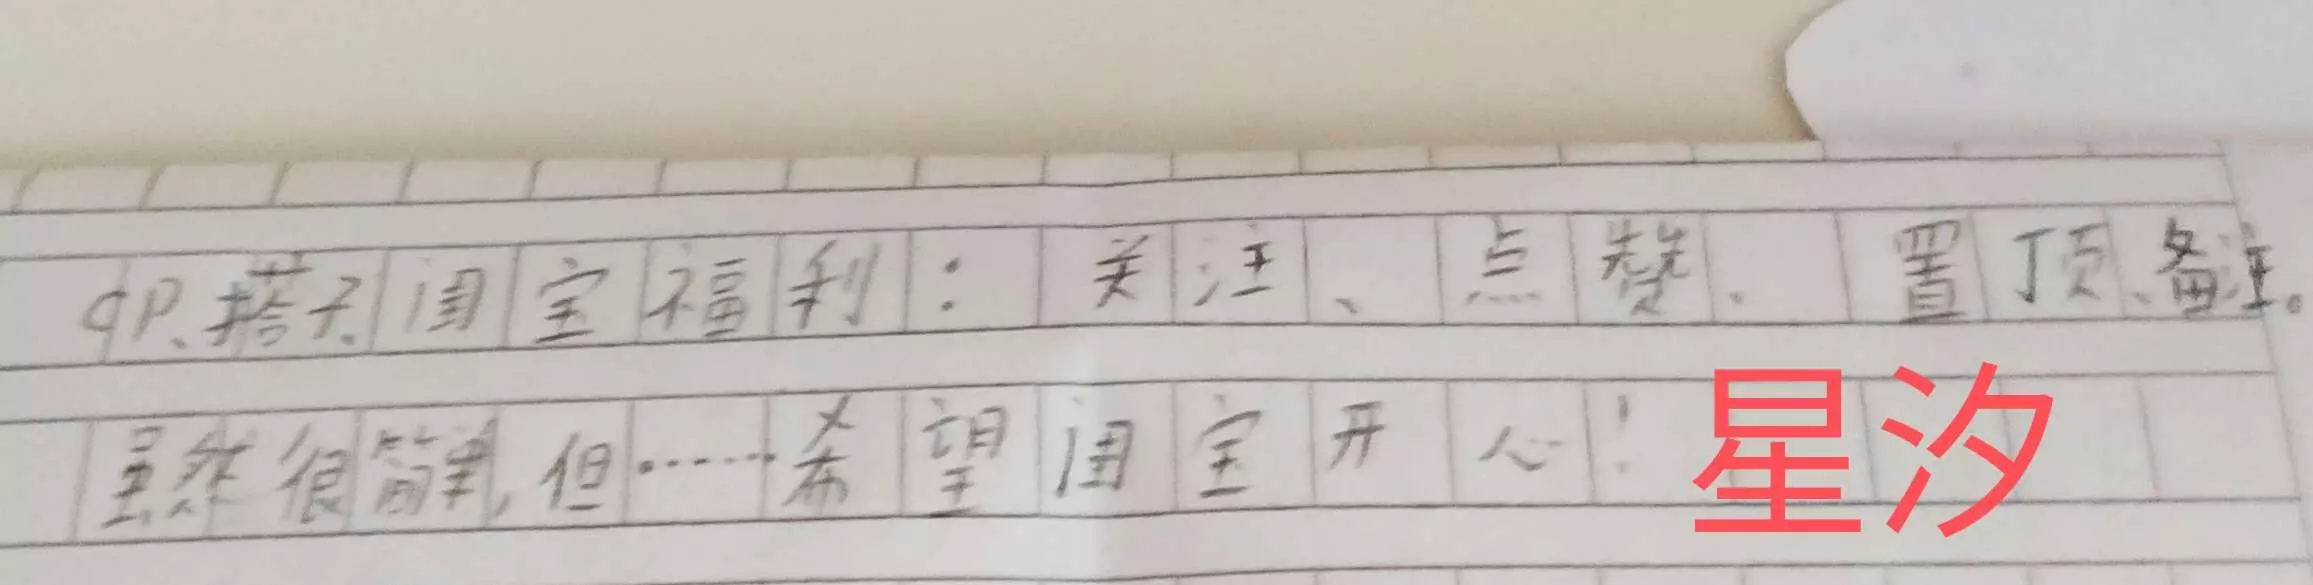 CP、搭子、闺宝福利：关注、点赞、置顶、备注。
虽然很简单，但……希望闺宝开心！
星汐